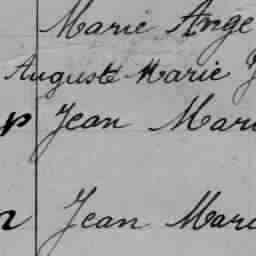 Marie Ange
Auguste Marie J
p Jean Mari
n Jean Mari